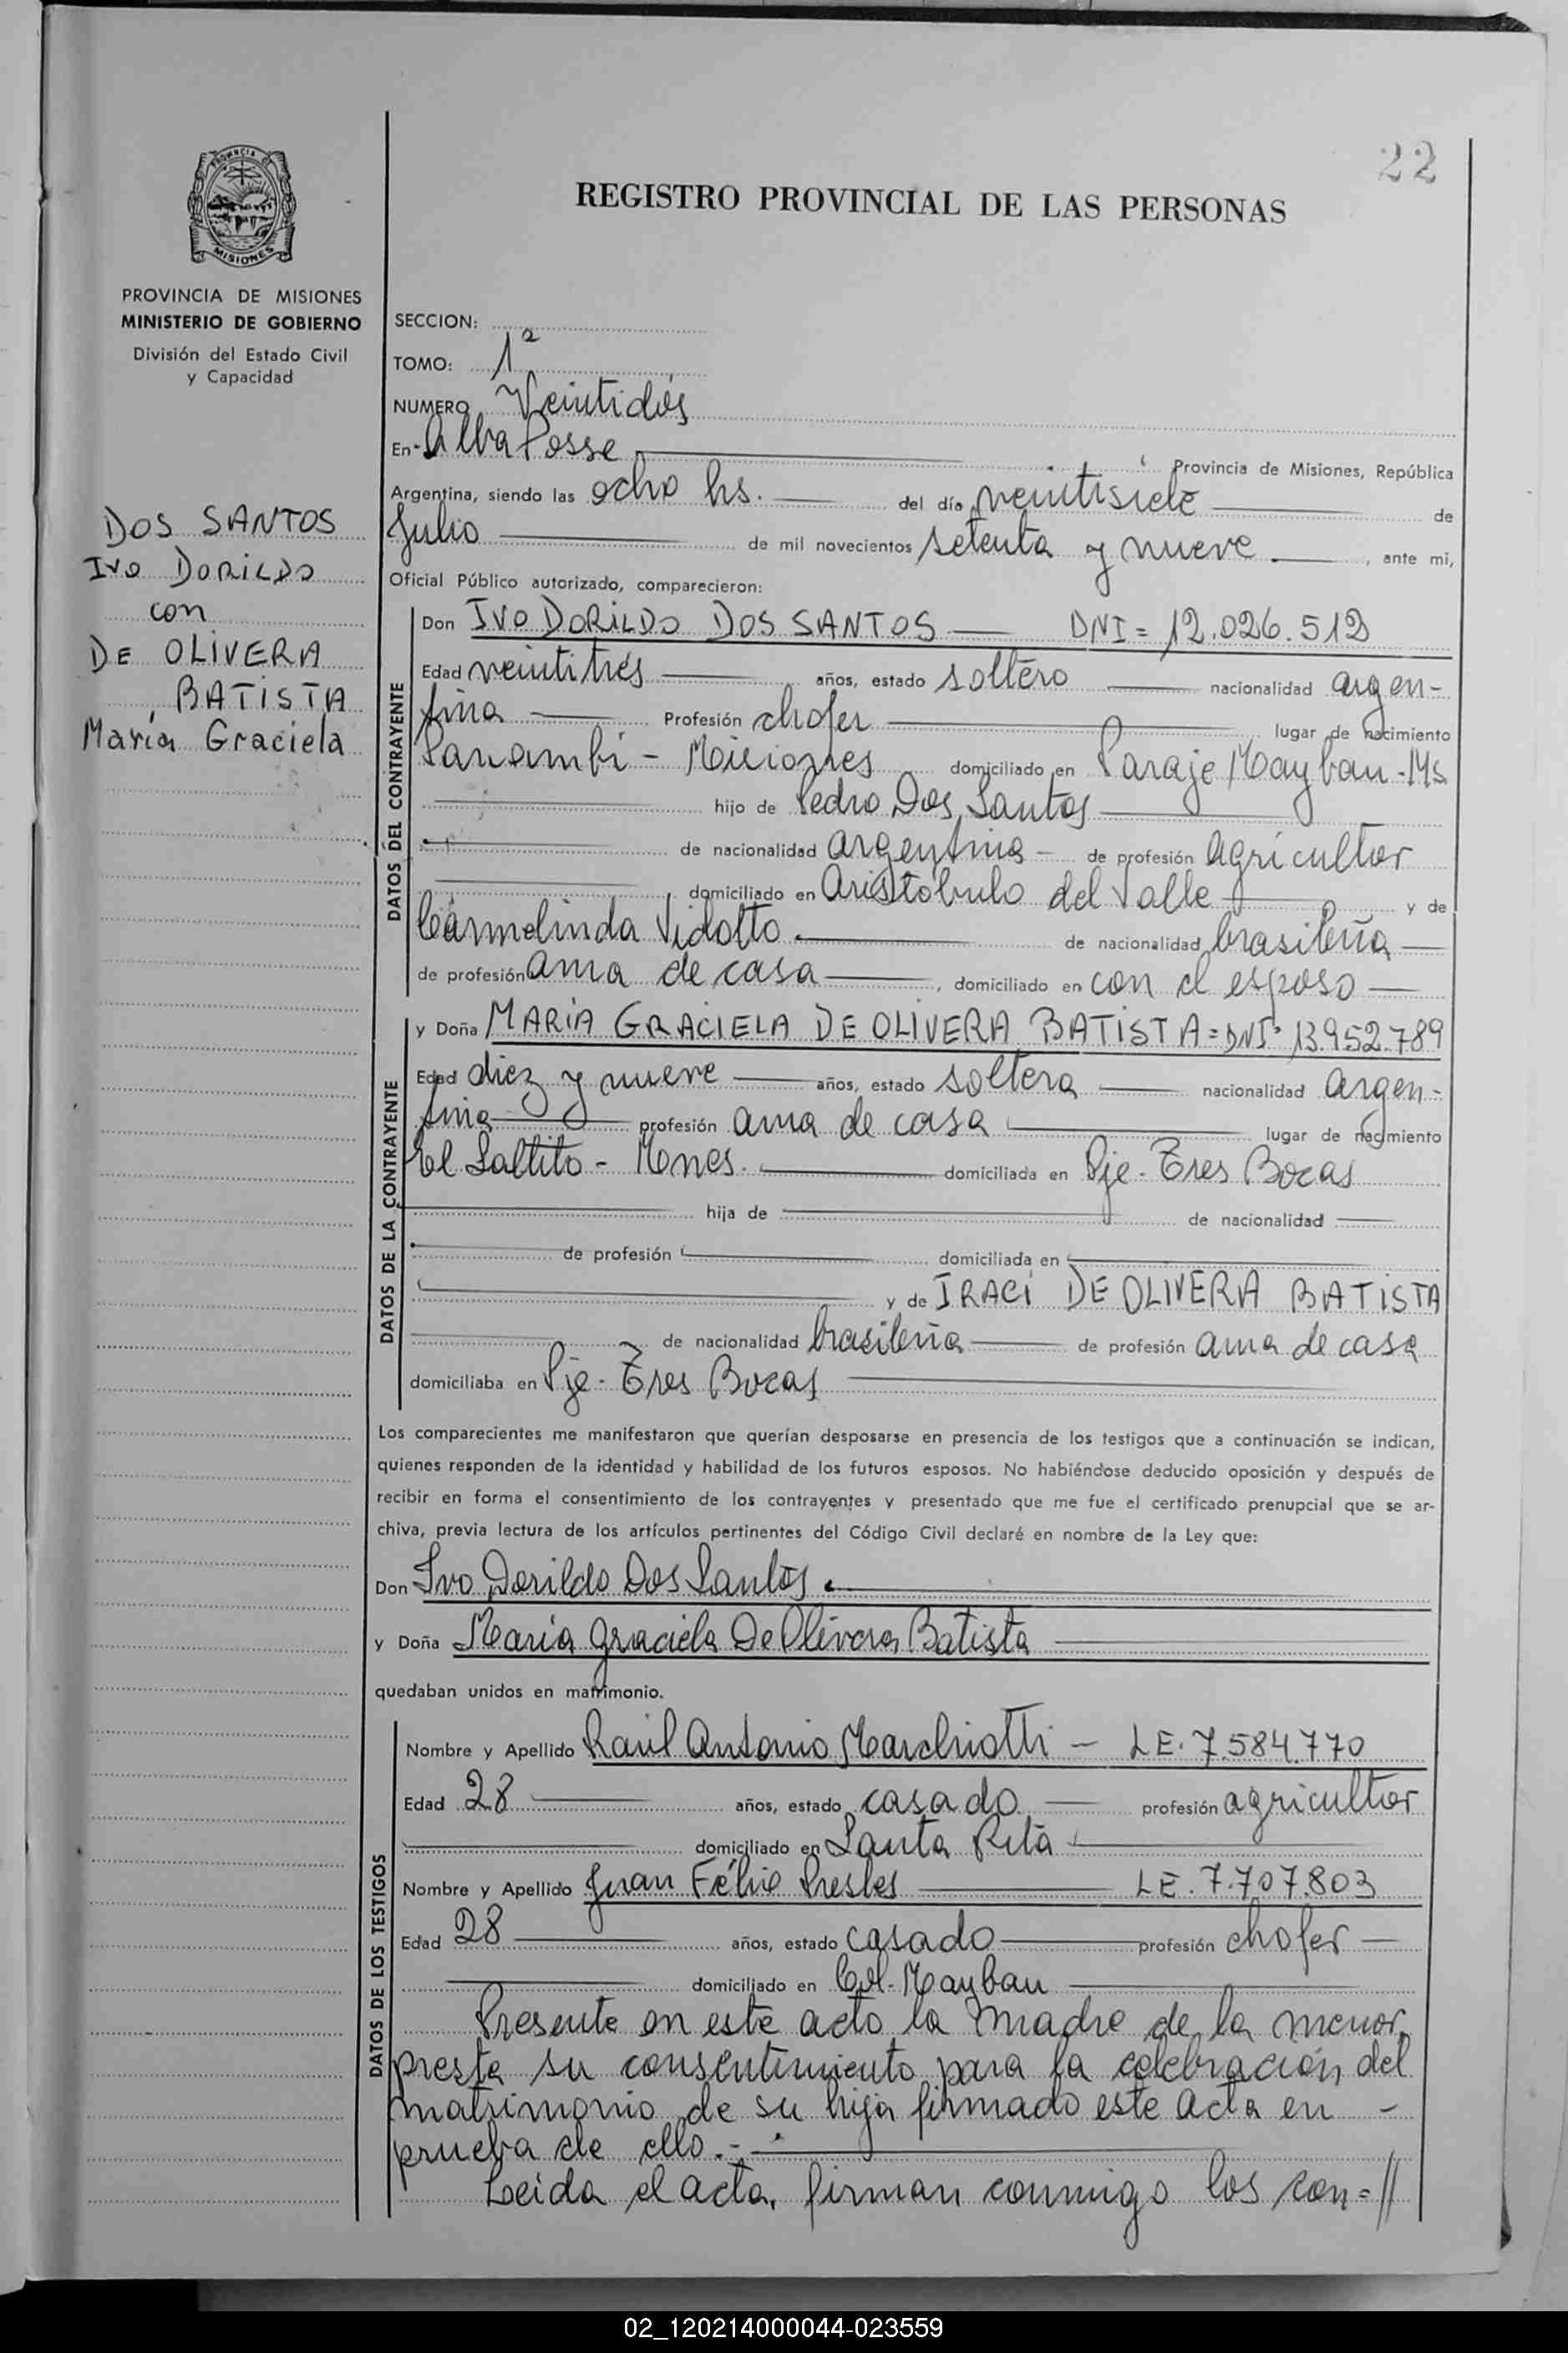 22
REGISTRO PROVINCIAL DE LAS PERSONAS
PROVINCIA DE MISIONES
MINISTERIO DE GOBIERNO
División del Estado Civil
y Capacidad
DOS SANTOS
Ivo DORILDO
con
DE OLIVERA
BATISTA
María Graciela
SECCION:
TOMO: 1ª
NUMERO Veintidós
En Alba Posse Provincia de Misiones, República
Argentina, siendo las ocho hs. del día veintisiete de
Julio de mil novecientos setenta y nueve , ante mi,
Oficial Público autorizado, comparecieron:
DATOS DEL CONTRAYENTE
Don IVO DORILDO DOS SANTOS — DNI = 12.026.512
Edad veintitrés años, estado soltero nacionalidad argen-
tina Profesión chofer lugar de nacimiento
Panambí - Misiones domiciliado en Paraje Mayban - Ms
hijo de Pedro Dos Santos
de nacionalidad argentina - de profesión agricultor
domiciliado en Aristóbulo del Valle y de
Carmelinda Vidotto de nacionalidad brasileña
de profesión ama de casa , domiciliado en con el esposo
DATOS DE LA CONTRAYENTE
y Doña MARIA GRACIELA DE OLIVERA BATISTA = DNI = 13.952.789
Edad diez y nueve años, estado soltera nacionalidad argen-
tina profesión ama de casa lugar de nacimiento
El Saltito - Mnes. domiciliada en Pje. Tres Bocas
hija de de nacionalidad
de profesión domiciliada en
y de IRACI DE OLIVERA BATISTA
de nacionalidad brasileña de profesión ama de casa
domiciliaba en Pje. Tres Bocas
Los comparecientes me manifestaron que querían desposarse en presencia de los testigos que a continuación se indican,
quienes responden de la identidad y habilidad de los futuros esposos. No habiéndose deducido oposición y después de
recibir en forma el consentimiento de los contrayentes y presentado que me fue el certificado prenupcial que se ar-
chiva, previa lectura de los artículos pertinentes del Código Civil declaré en nombre de la Ley que:
Don Ivo Dorildo Dos Santos
y Doña María Graciela De Olivera Batista
quedaban unidos en matrimonio.
DATOS DE LOS TESTIGOS
Nombre y Apellido Raúl Antonio Marchiotti — LE. 7.584.770
Edad 28 años, estado casado profesión agricultor
domiciliado en Santa Rita
Nombre y Apellido Juan Félix Prestes LE. 7.707.803
Edad 28 años, estado casado profesión chofer
domiciliado en Col. Mayban
Presente en este acto la madre de la menor,
presta su consentimiento para la celebración del
matrimonio de su hija firmado este acta en -
prueba de ello.-
Leída el acta, firman conmigo los con=//
02_120214000044-023559